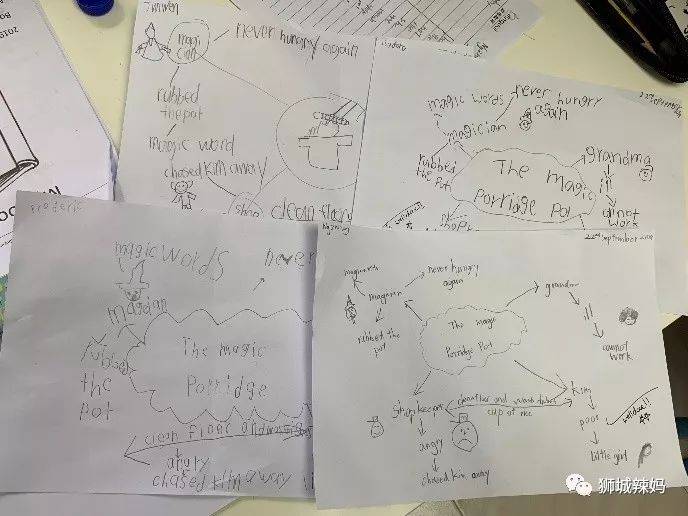 magi
cian
never hungry again
rubbed
the pot
magic word
chased kim away
shop
clean floor
magic words
never hungry
again
magician
rubbed
the pot
The magic
Porridge Pot
grandma
ill
cannot
work
magic words
never
magician
rubbed
the
pot
The magic
Porridge
clean floor and
angry
chased kim away
22nd September
magician
never hungry
again
rubbed the
pot
The magic
Porridge Pot
grandma
ill
cannot
work
Shop keeper
cup of rice
angry
chased kim away
Kim
poor
little girl
狮城辣妈